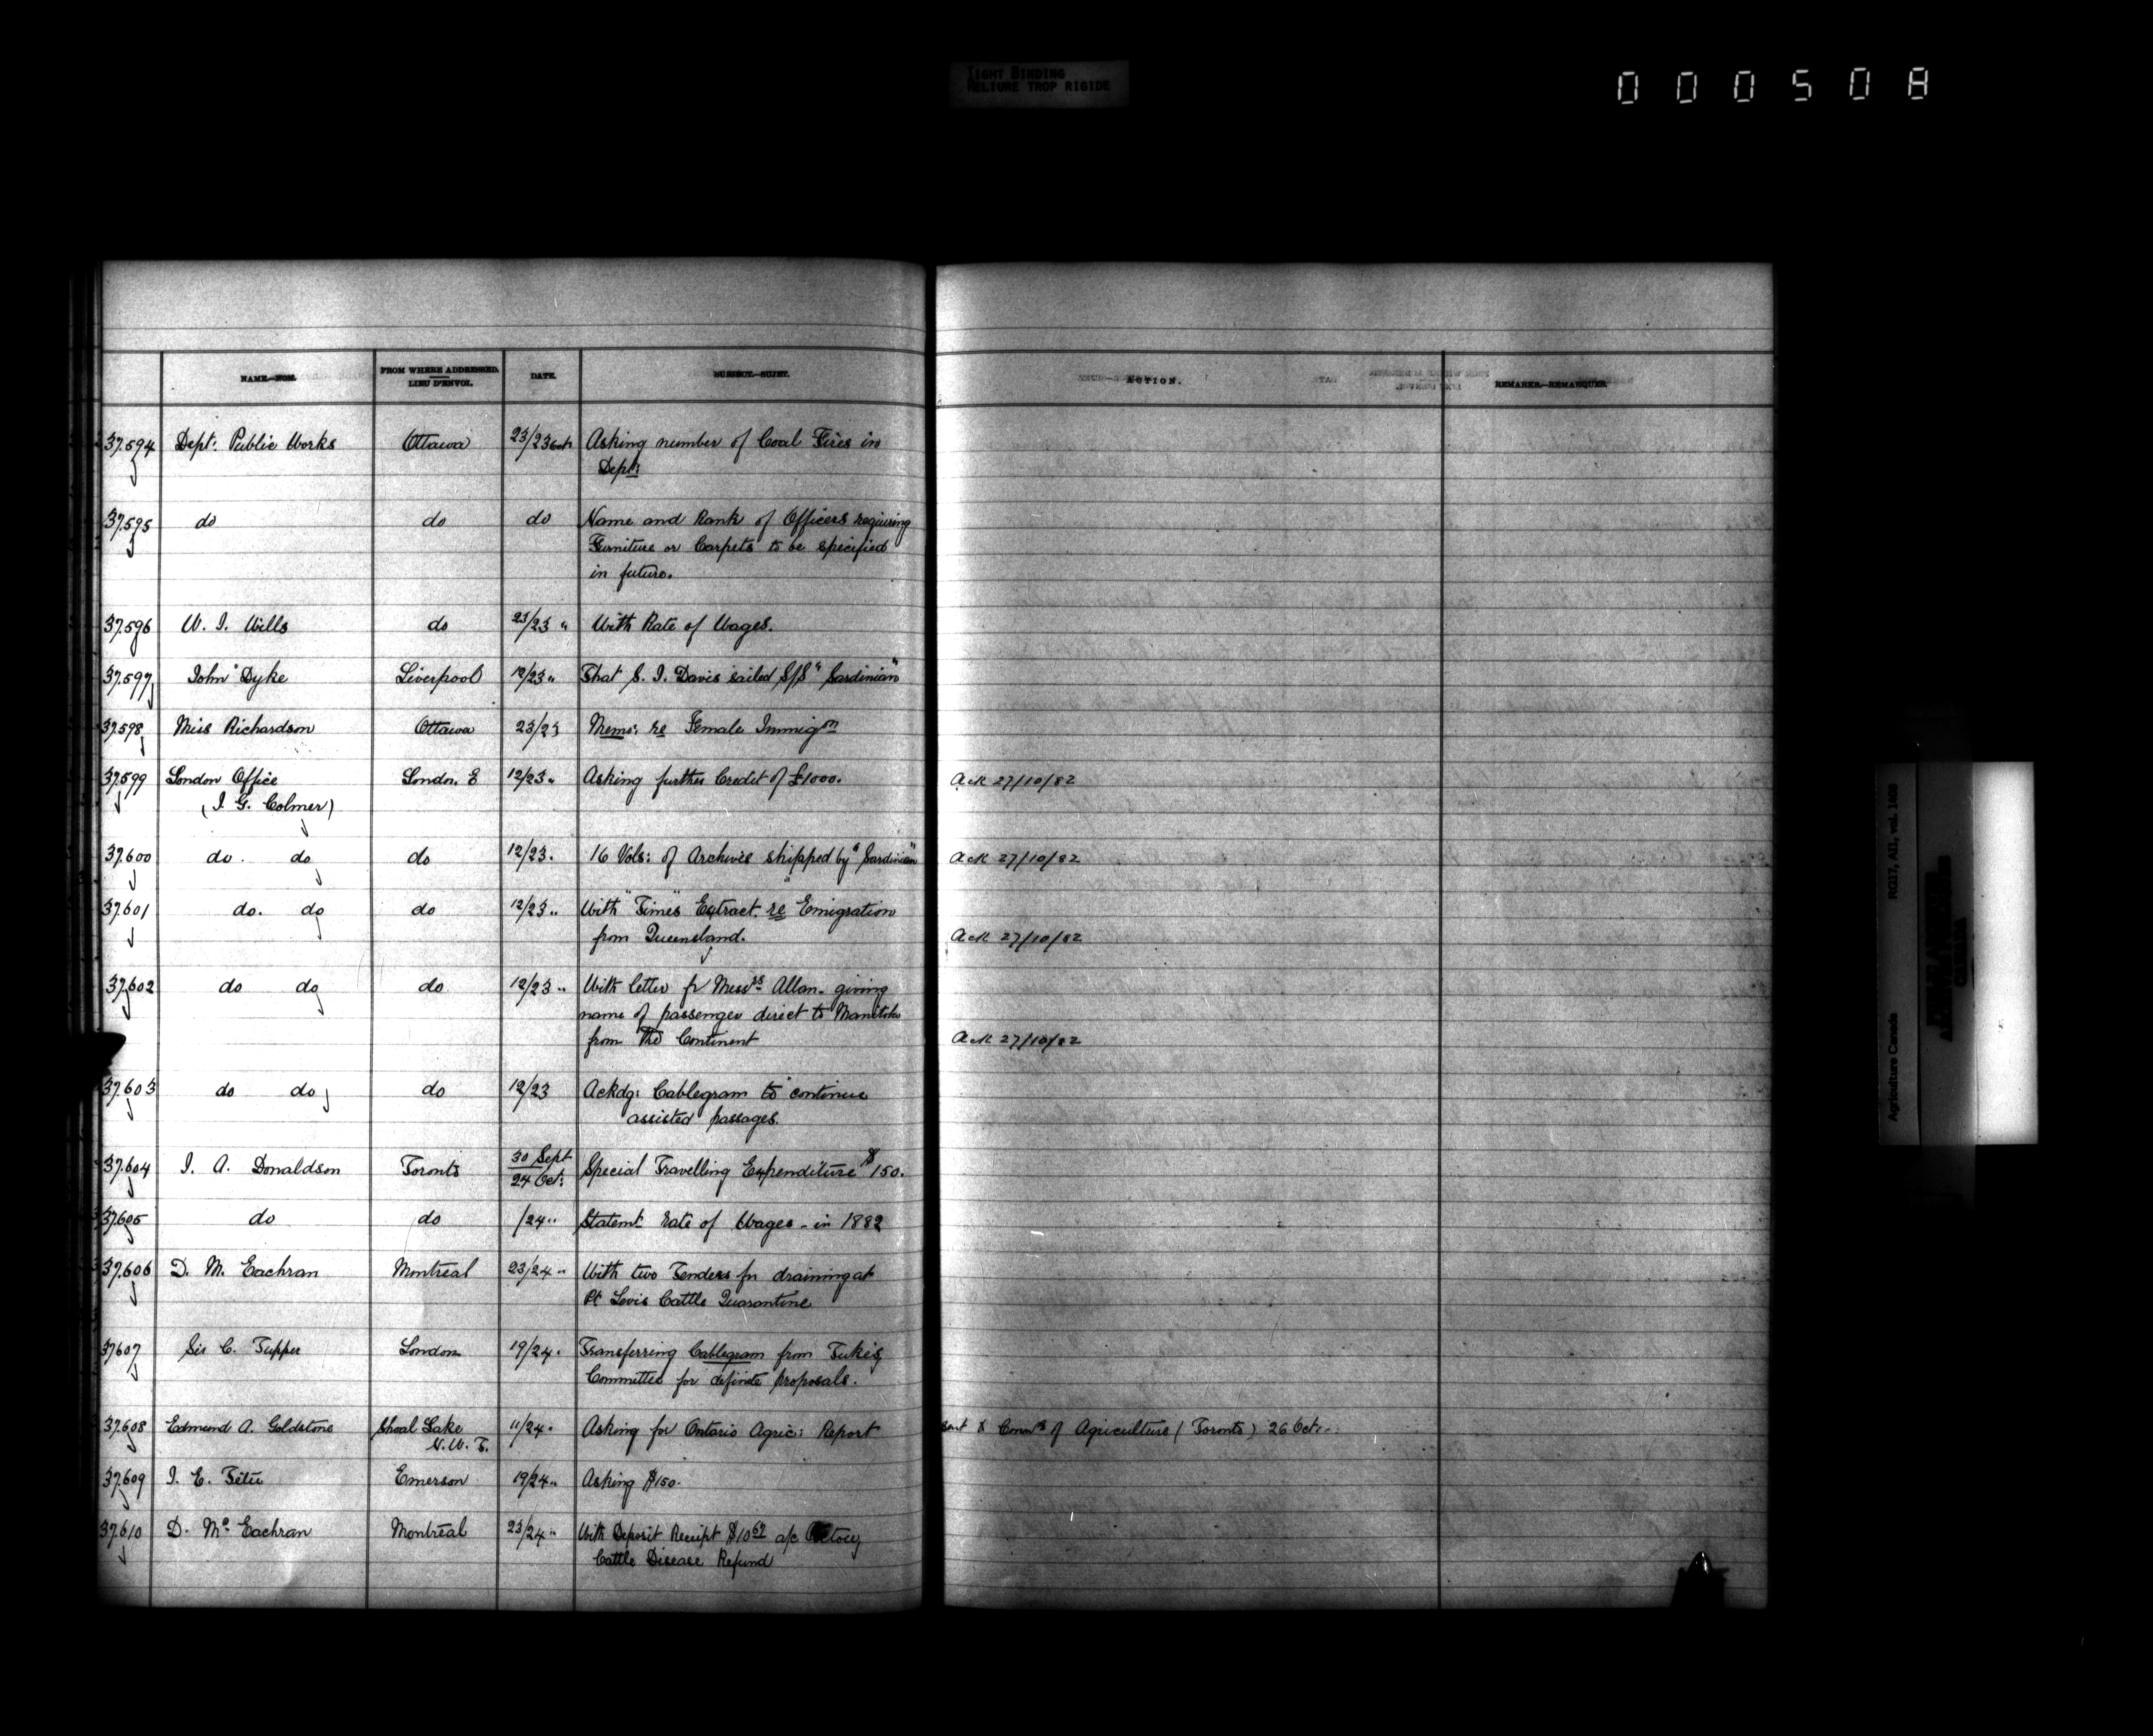 TIGHT BINDING
RELIURE TROP RIGIDE
000508
NAME.—NOM.
FROM WHERE ADDRESSED.
LIEU D'ENVOI.
DATE.
SUBJECT.—SUJET.
ACTION.
REMARKS.—REMARQUES.
37.594 Dept: Public Works Ottawa 23/23 Oct Asking number of Coal Fires in
Dept:
37.595 do do do Name and Rank of Officers requiring
Furniture or Carpets to be specified
in future.
37.596 W. I. Wills do 23/23 " With Rate of Wages.
37.597 John Dyke Liverpool 12/23 " That S. I. Davis sailed S/S "Sardinian"
37.598 Miss Richardson Ottawa 23/23 Memo: re Female Immigon
37.599 London Office London. E 12/23 " Asking further Credit of £1000. Ack 27/10/82
(J. G. Colmer)
37.600 do. do do 12/23. 16 Vols: of Archives shipped by "Sardinian" Ack 27/10/82
37.601 do. do do 12/23 " With "Times" Extract. re Emigration
from Queensland. Ack 27/10/82
37.602 do do do 12/23 " With letter fr Messrs Allan. giving
name of passenger direct to Manitoba
from the Continent Ack 27/10/82
37.603 do do do 12/23 Ackdg: Cablegram to continue
assisted passages.
37.604 J. A. Donaldson Toronto 30 Sept/24 Oct: Special Travelling Expenditure $150.
37.605 do do /24 " Statemt rate of Wages - in 1882
37.606 D. M. Eachran Montreal 23/24 " With two Tenders for draining at
Pt Levis Cattle Quarantine
37607 Sir C. Tupper London 19/24 " Transferring Cablegram from Tuke's
Committee for definite proposals.
37.608 Edmund A. Goldstone Shoal Lake 11/24 " Asking for Ontario Agric: Report Sent to Comrs of Agriculture (Toronto) 26 Oct.
N.W.T.
37.609 J. E. Tétu Emerson 19/24 " Asking $150.
37.610 D. Mc Eachran Montreal 23/24 " With Deposit Receipt $10 a/c Pictou
Cattle Disease Refund
Agriculture Canada RG17, AII, vol.